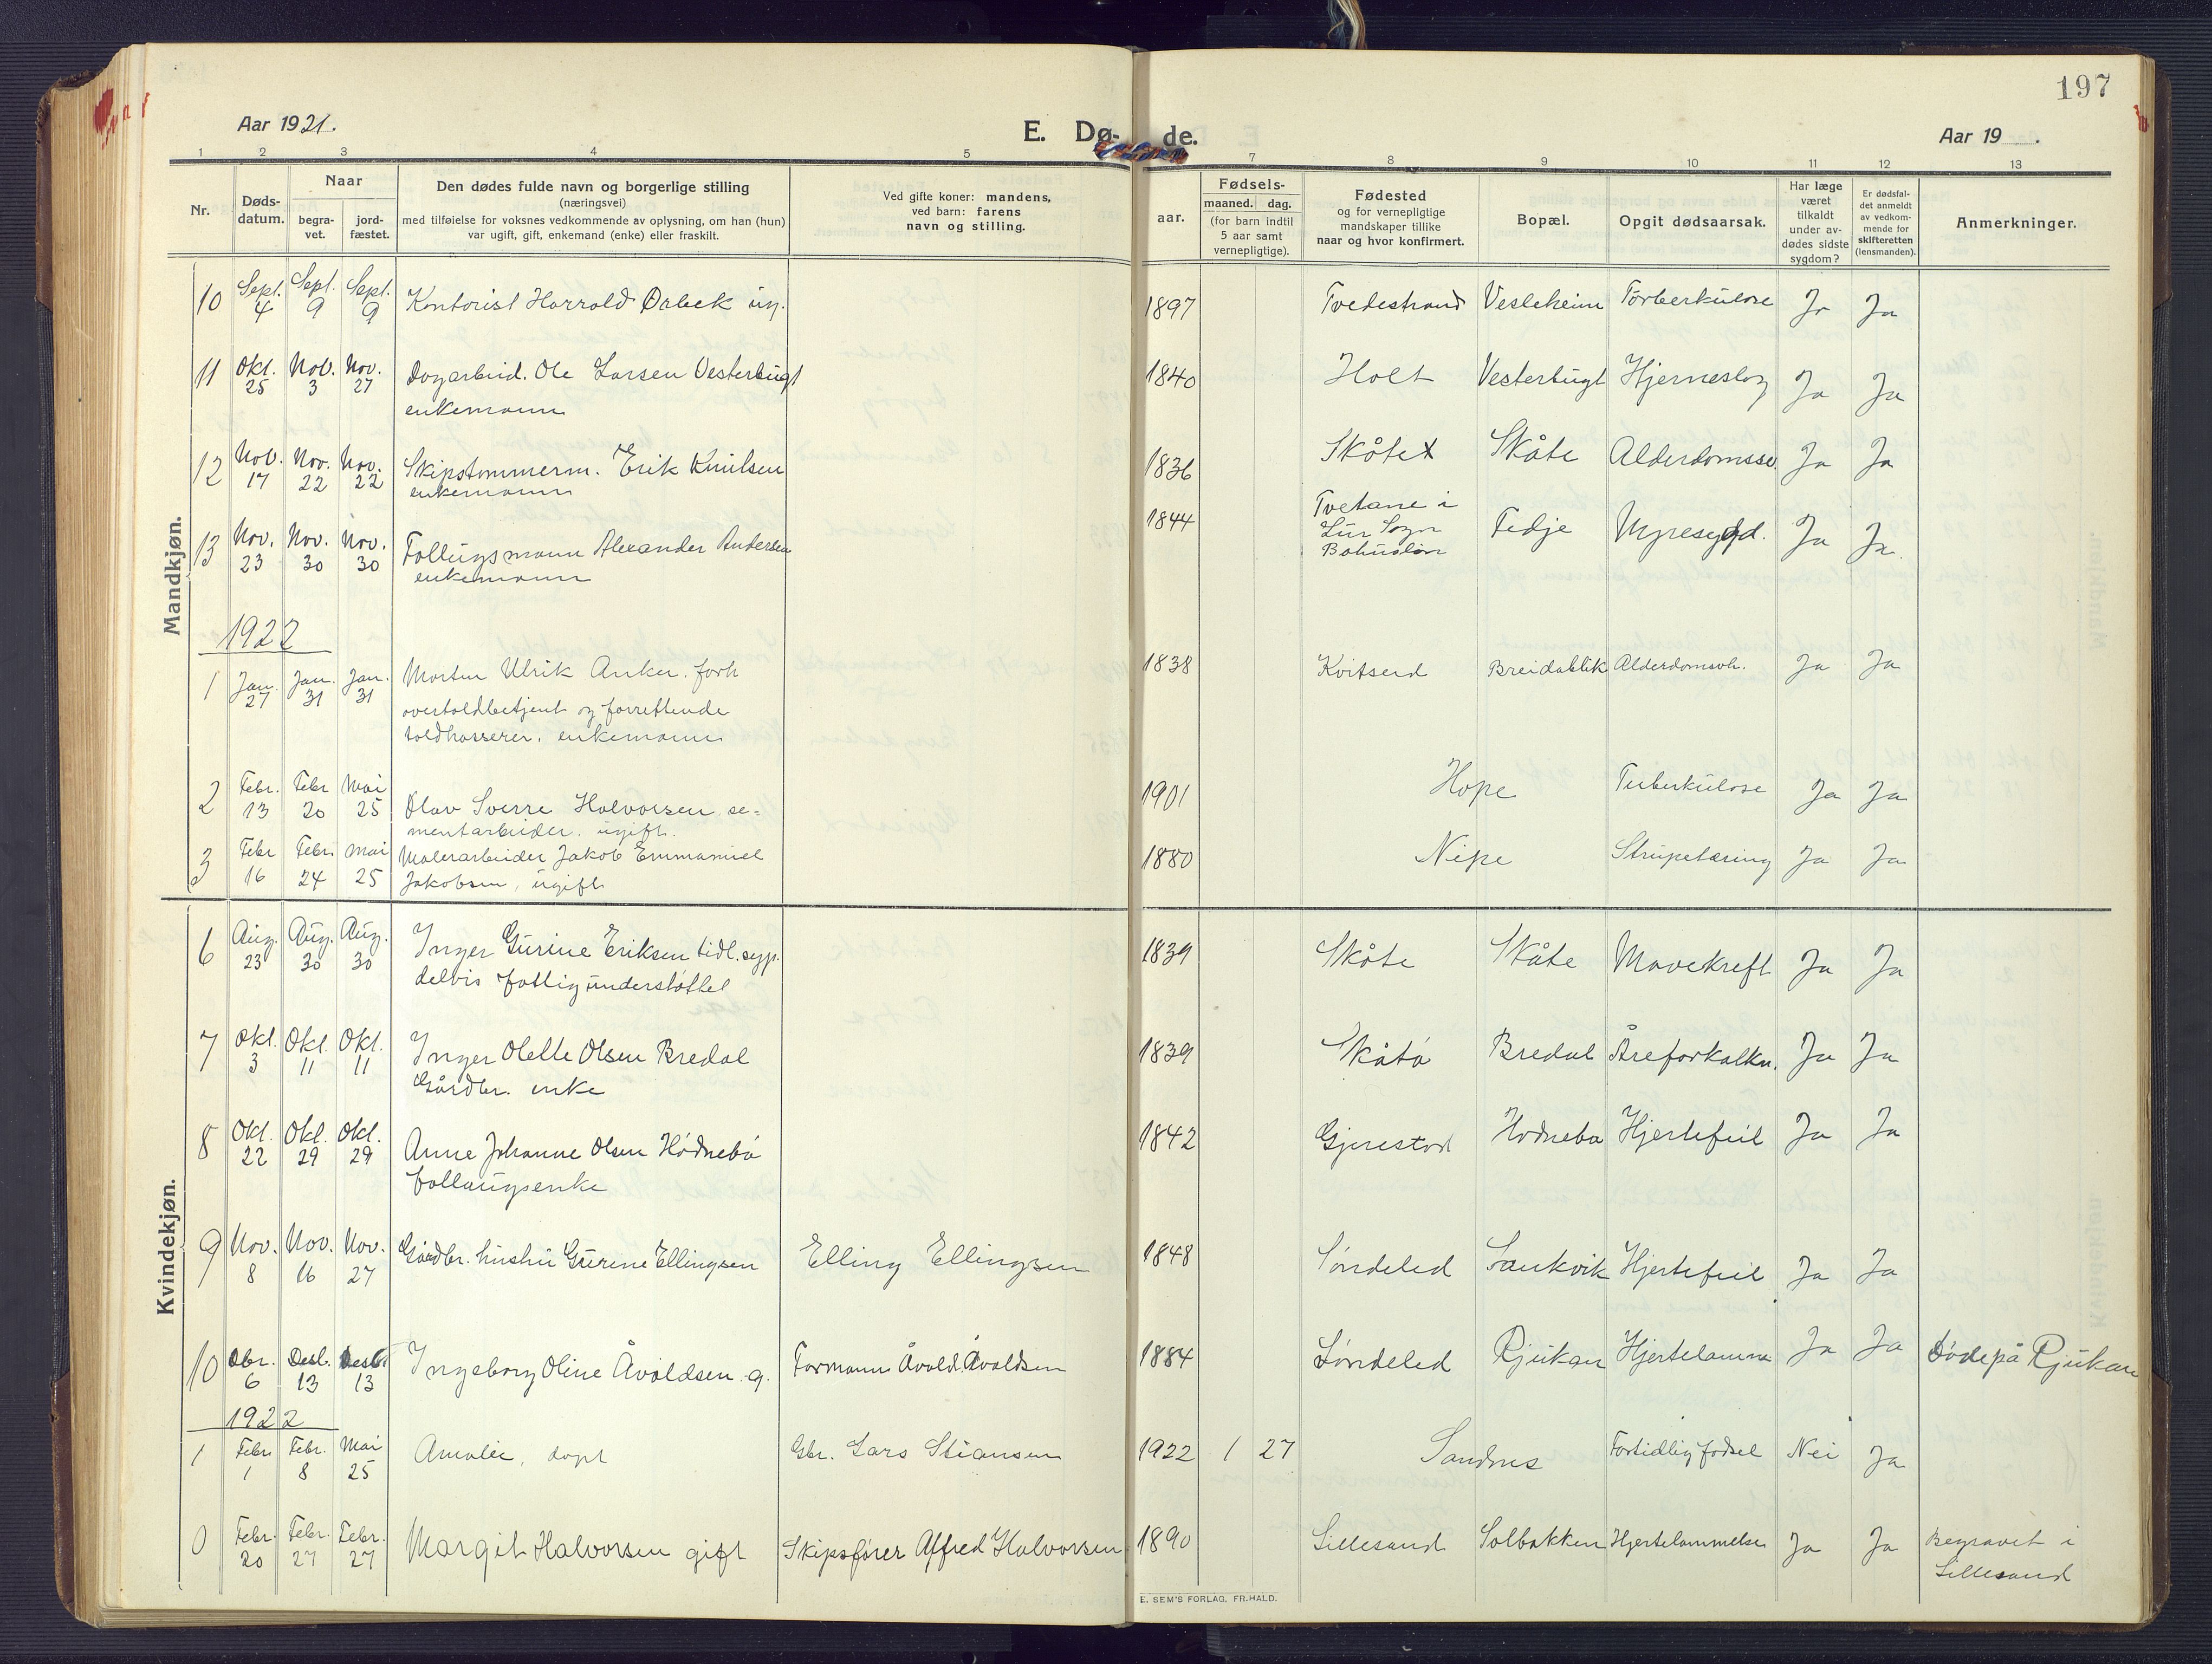 197
Aar 1921.
E. Dø- de.
Aar 19 .
1 2 3 4 5 7 8 9 10 11 12 13
Nr.
Døds-
datum.
Naar
begra-
vet.
jord-
fæstet.
Den dødes fulde navn og borgerlige stilling
(næringsvei)
med tilføielse for voksnes vedkommende av oplysning, om han (hun)
var ugift, gift, enkemand (enke) eller fraskilt.
Ved gifte koner: mandens,
ved barn: farens
navn og stilling.
aar.
Fødsels-
maaned. dag.
(for barn indtil
5 aar samt
vernepligtige).
Fødested
og for vernepligtige
mandskaper tillike
naar og hvor konfirmert.
Bopæl.
Opgit dødsaarsak.
Har læge
været
tilkaldt
under av-
dødes sidste
sygdom?
Er dødsfal-
det anmeldt
av vedkom-
mende for
skifteretten
(lensmanden).
Anmerkninger.
Mandkjøn.
10 Sept. 4 Sept. 9 Sept. 9 Kontorist Harrald Dabek ug. 1897 Tvedestrand Vesleheim Torberkulose Ja Ja
11 Okt. 25 Nov. 3 Nov. 27 Dagarbeid. Ole Larsen Vesterbugt 1840 Holt Vesterbugt Hjerneslag Ja Ja
enkemann
12 Nov. 17 Nov. 22 Nov. 22 Skipstømmerm. Erik Knutsen 1836 Skåtø Skåtø Alderdomssv. Ja Ja
enkemann
13 Nov. 23 Nov. 30 Nov. 30 Follugsmann Alexander Andersen 1844 Tvetane i Fedje Nyresygd. Ja Ja.
enkemann Lur Sogn
Bohuslän
1922
1 Jan. 27 Jan. 31 Jan. 31 Morten Ulrik Anker. forh 1838 Kvitseid Breidablik Alderdomsvh. Ja Ja
overtoldbetjent og forrettende
toldkasserer. enkemann
2 Febr. 13 Febr 20 Mai 25 Olav Sverre Halvorsen se- 1901 Hope Tuberkulose Ja Ja
mentarbeider. ugift.
3 Febr 16 Febr. 24 Mai 25 Malerarbeider Jakob Emmanuel 1880 Nipe Strupetæring Ja Ja
Jakobsen, ugift
Kvindekjøn.
6 Aug. 23 Aug. 30 Aug. 30 Inger Gurine Eriksen tidl. syp. 1839 Skåtø Skåtø Mavekreft Ja Ja
delvis fattigunderstøttet
7 Okt. 3 Okt. 11 Okt. 11 Inger Olette Olsen Bredal 1839 Skåtø Bredal Åreforkalkn. Ja Ja
Gårdbr. enke
8 Okt. 22 Okt. 29 Okt. 29 Anne Johanne Olsen Hødnebø 1842 Gjerestad Hødnebø Hjertefeil Ja Ja
follaugsenke
9 Nov. 8 Nov. 16 Nov. 27 Gårdbr. hustru Gurine Ellingsen Elling Ellingsen 1848 Søndeled Sankvik Hjertefeil Ja Ja
10 Dbr. 6 Desb. 13 Desb. 13 Ingeborg Oline Åvaldsen g. Formann Åvald Åvaldsen 1884 Søndeled Rjukan Hjertelamme Ja Ja Døde på Rjukan
1922
1 Febr 1 Febr. 8 Mai 25 Amalie, døpt Gbr. Lars Stiansen 1922 1 27 Sandnes Fortidlig fødsel Nei Ja
0 Febr. 20 Febr. 27 Febr. 27 Margit Halvorsen gift Skipsfører Alfred Halvorsen 1890 Lillesand Solbakken Hjertelammelse Ja Ja Begravet i
Lillesand
E. SEM'S FORLAG, FR.HALD.